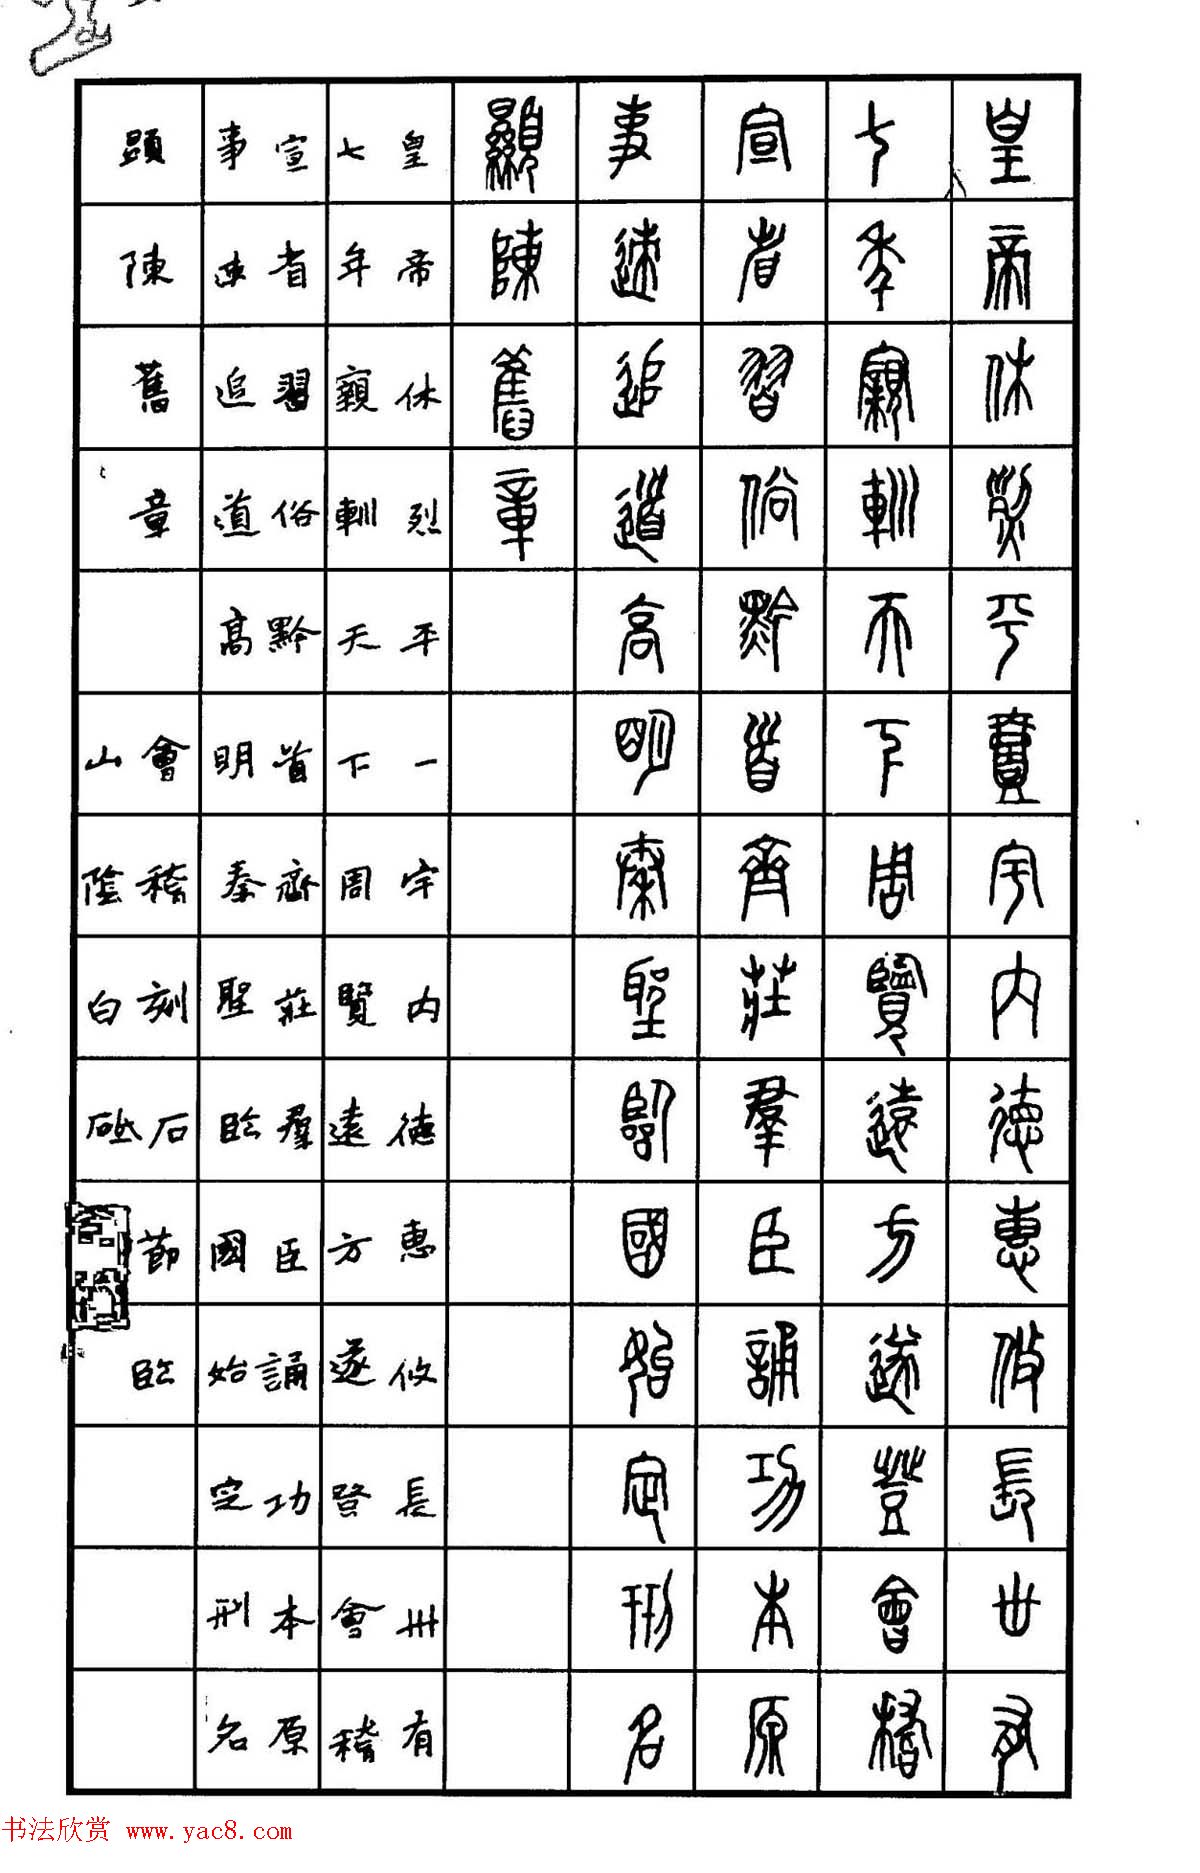 皇帝休烈平壹宇内德惠攸長世有
七年親軵天下周覽遠方遂登會稽
宣省習俗黔首齊莊羣臣誦功本原
事速追道高明秦聖臨國始定刑名
顯陳舊章
皇帝休烈平一宇内德惠攸長卅有
七年親軵天下周覽遠方遂登會稽
宣省習俗黔首齊莊羣臣誦功本原
事速追道高明秦聖臨國始定刑名
顯陳舊章
會稽刻石節臨
山陰白砥
书法欣赏 www.yac8.com